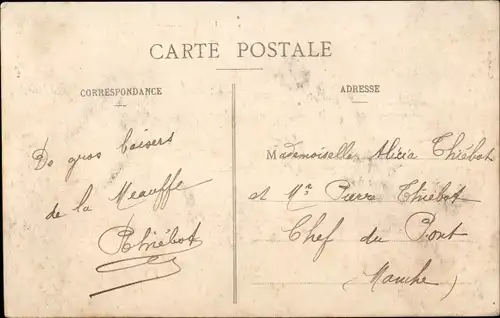 CARTE POSTALE
CORRESPONDANCE
ADRESSE
De gros baisers
de la Meauffe
Thiébot
Mademoiselle Alicia Thiébot
et Mr Pierre Thiébot
Chef du Pont
Manche)